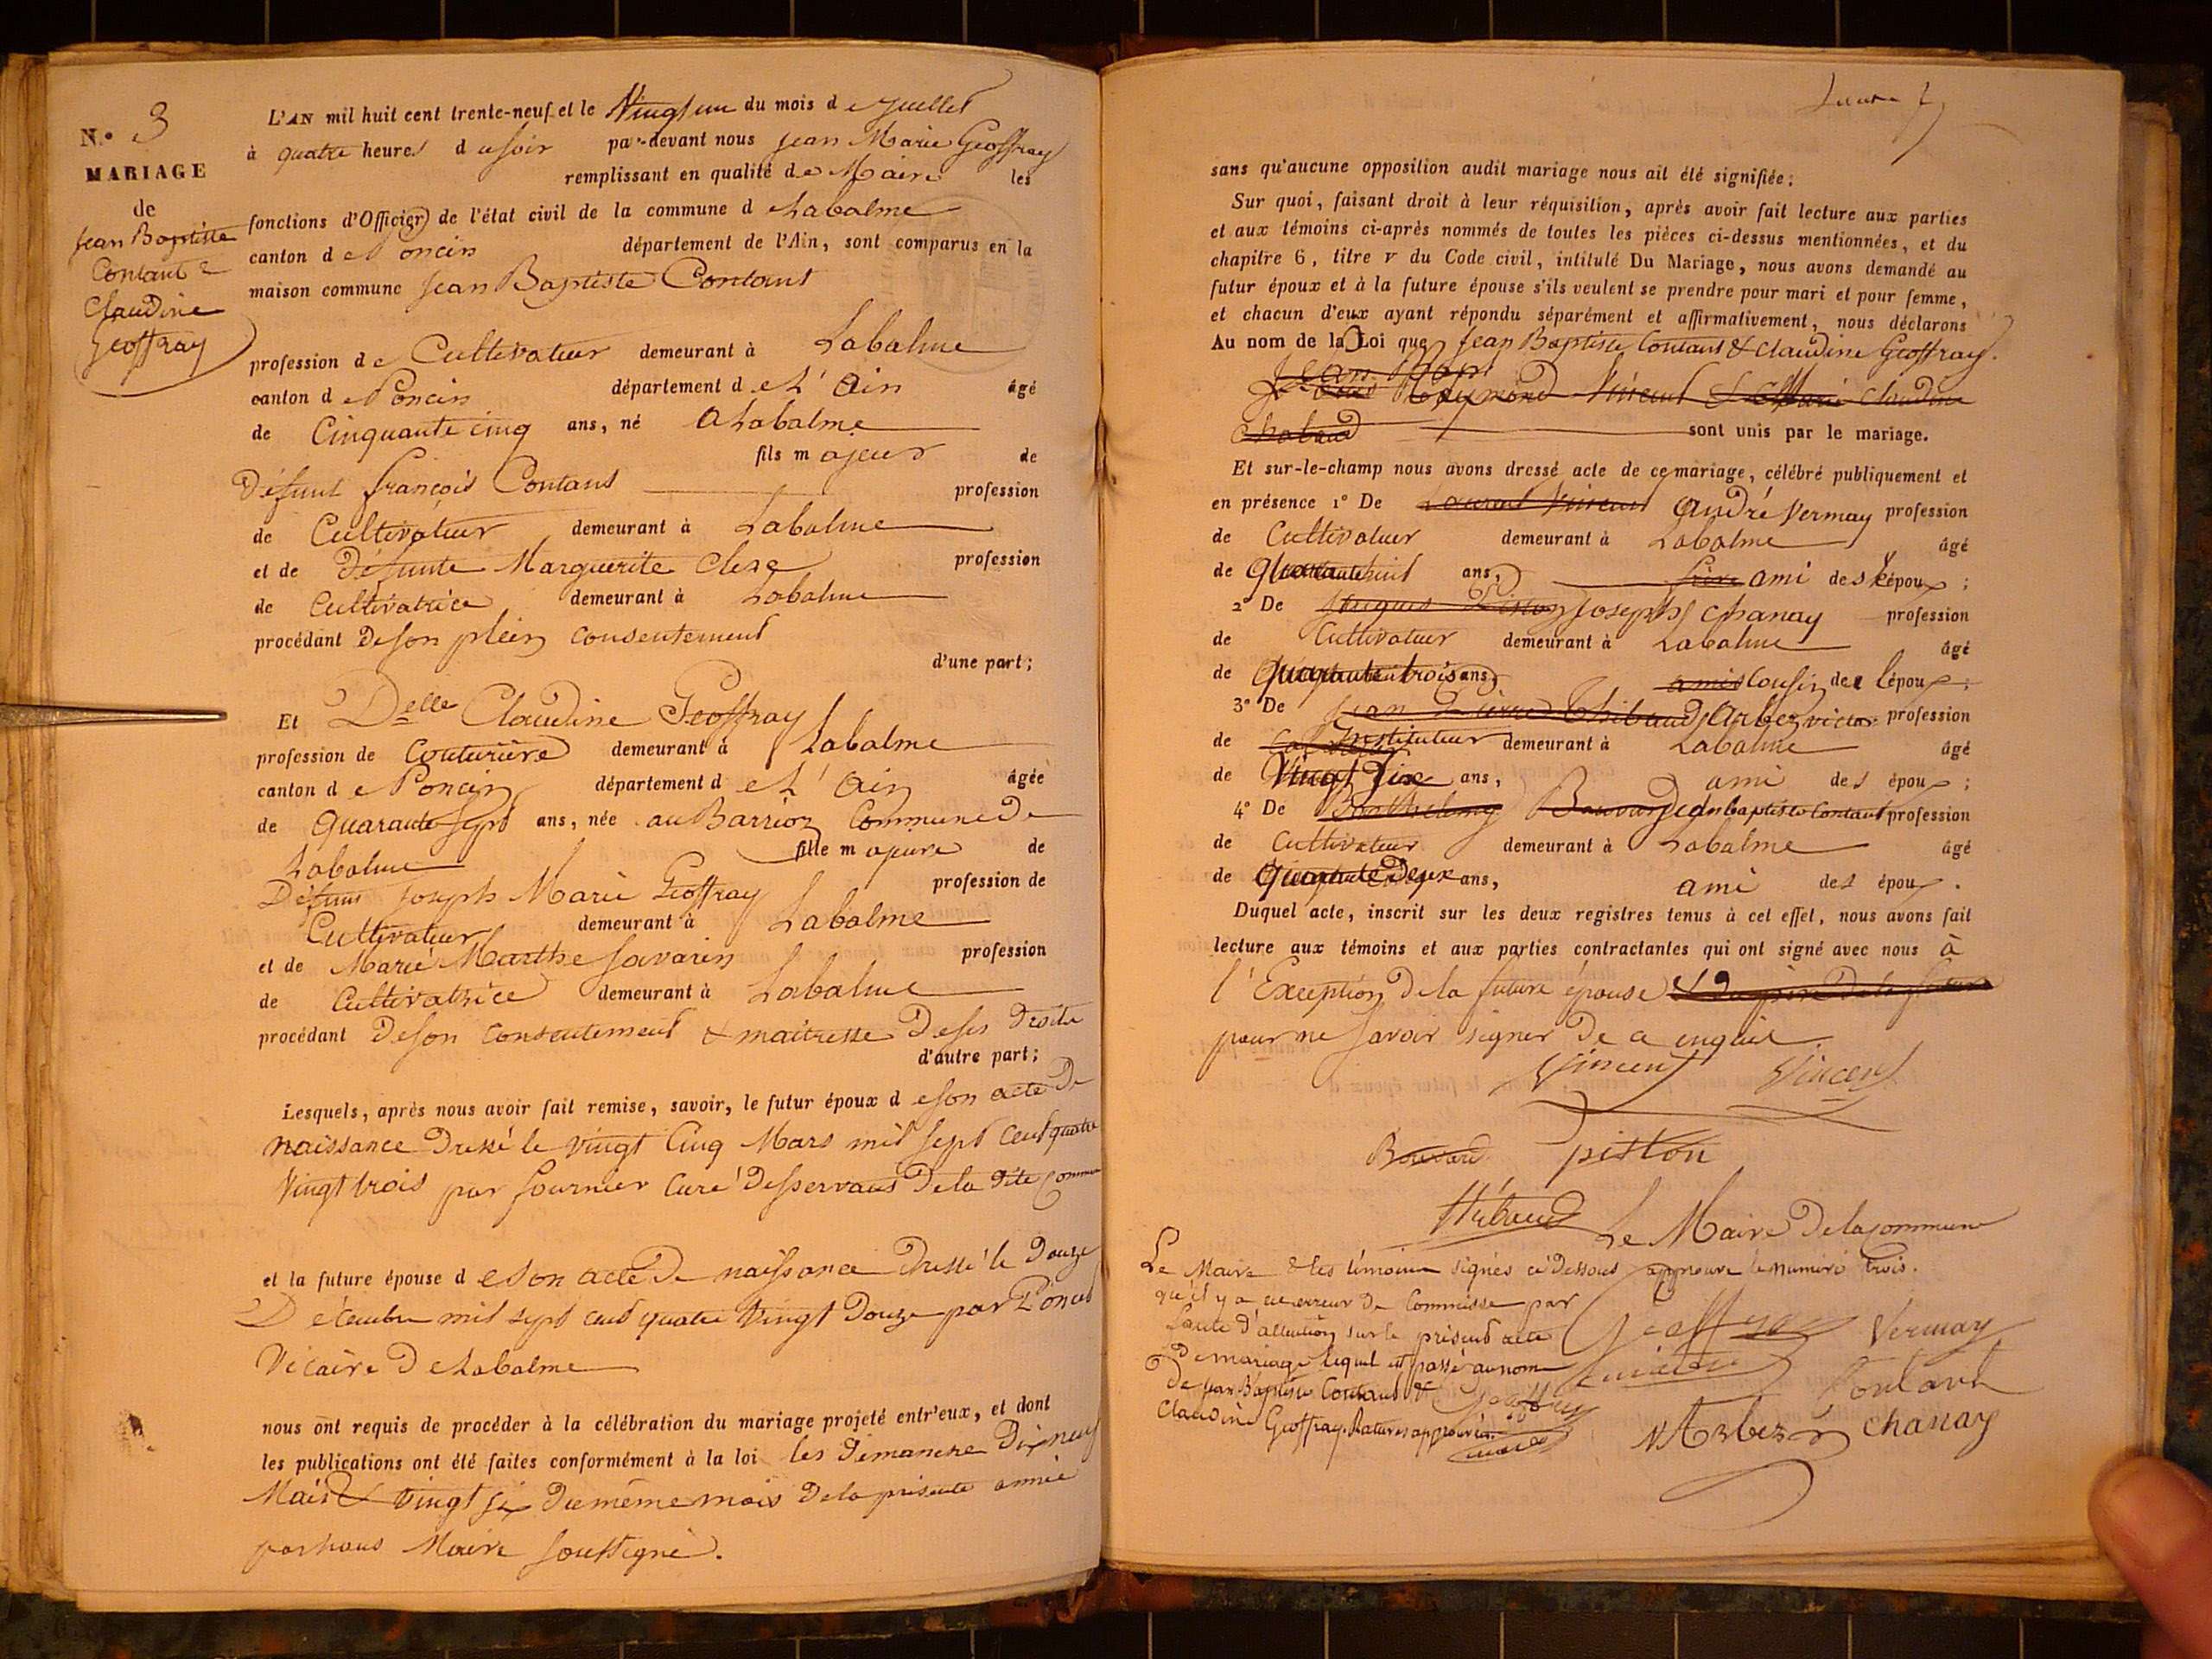 N.o 3
MARIAGE
de
Jean Baptiste
Contant &
Claudine
Geoffray
L'AN mil huit cent trente-neuf et le Vingt un du mois de Juillet
à quatre heures du soir par-devant nous Jean Marie Geoffray
remplissant en qualité de Maire les
fonctions d'Officier de l'état civil de la commune de Labalme
canton de Poncin département de l'Ain, sont comparus en la
maison commune Jean Baptiste Contant
profession de Cultivateur demeurant à Labalme
canton de Poncin département de L'Ain âgé
de Cinquante cinq ans, né à Labalme
fils majeur de
Défunt françois Contant profession
de Cultivateur demeurant à Labalme
et de Défunte Marguerite profession
de Cultivatrice demeurant à Labalme
procédant de son plein consentement
d'une part;
Et Delle Claudine Geoffray
profession de Couturière demeurant à Labalme
canton de Poncin département de L'Ain âgée
de quarante sept ans, née au Barrioz Commune De
Labalme fille majeure de
Défunt Joseph Marie Geoffray profession de
Cultivateur demeurant à Labalme
et de Marie Marthe Savarin profession
de Cultivatrice demeurant à Labalme
procédant De son consentement & maitresse De ses Droits
d'autre part;
Lesquels, après nous avoir fait remise, savoir, le futur époux de son acte De
naissance Dressé le vingt Cinq Mars mil sept cent quatre
Vingt trois par fournier Curé Desservant De la dite Commune
et la future épouse de son acte De naissance Dressé le Douze
Décembre mil sept cent quatre Vingt Douze par Poncet
Vicaire De Labalme
nous ont requis de procéder à la célébration du mariage projeté entr'eux, et dont
les publications ont été faites conformément à la loi les Dimanche Dix neuf
Mai & vingt six du même mois De la présente année
par nous Maire soussigné.
sans qu'aucune opposition audit mariage nous ait été signifiée;
Sur quoi, faisant droit à leur réquisition, après avoir fait lecture aux parties
et aux témoins ci-après nommés de toutes les pièces ci-dessus mentionnées, et du
chapitre 6, titre v du Code civil, intitulé Du Mariage, nous avons demandé au
futur époux et à la future épouse s'ils veulent se prendre pour mari et pour femme,
et chacun d'eux ayant répondu séparément et affirmativement, nous déclarons
Au nom de la Loi que Jean Baptiste Contant & Claudine Geoffray.
Jean Bap
Raymond Vincent & Marie Claudine
Chabaud sont unis par le mariage.
Et sur-le-champ nous avons dressé acte de ce mariage, célébré publiquement et
en présence 1° De Laurent Vincent André Vermay profession
de Cultivateur demeurant à Labalme âgé
de quarante huit ans, frère ami des époux;
2° De Joseph Chanay profession
de Cultivateur demeurant à Labalme âgé
de quarante trois ans, amis Cousin de l'époux;
3° De Jean Pierre Thibaud Arbez victor profession
de Instituteur demeurant à Labalme âgé
de Vingt Six ans, ami des époux;
4° De Barthelemy Bouvard Jean baptiste Contant profession
de Cultivateur demeurant à Labalme âgé
de quarante Deux ans, ami des époux.
Duquel acte, inscrit sur les deux registres tenus à cet effet, nous avons fait
lecture aux témoins et aux parties contractantes qui ont signé avec nous à
l'Exception De la future épouse & du père De la future
pour ne savoir signer De ce enquis
Vincent Vincent
Bouvard piston
Thibaud Le Maire De la commune
Le Maire & les témoins signés ci Dessous approuve le numéro trois.
qu'il y a eu erreur De Commisse par
faute d'attention sur le présent acte
De mariage lequel est passé au nom
De Jean Baptiste Contant &
Claudine Geoffray. Ratures approuvées.
Geoffray Vermay
maire Contant
Geoffray
maire
V Arbez Chanay